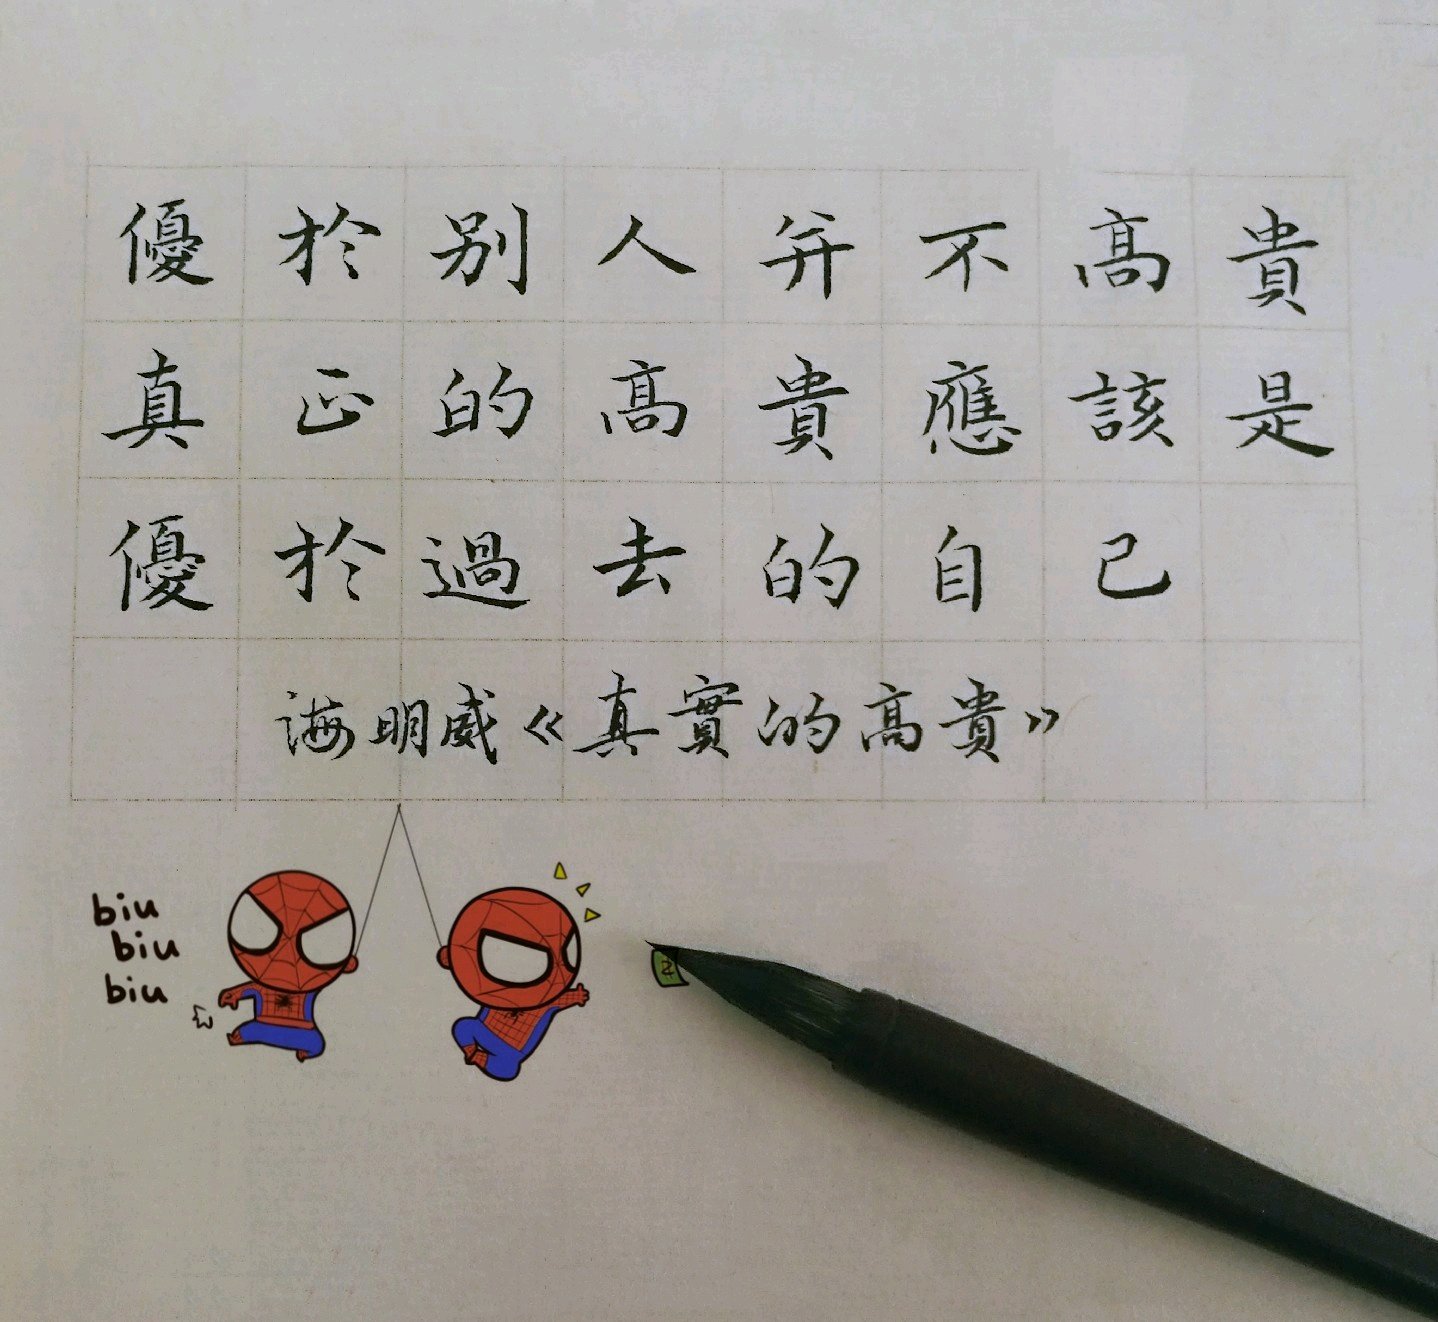 優於別人并不高貴
真正的高貴應該是
優於過去的自己
海明威《真實的高貴》
biu
biu
biu
2